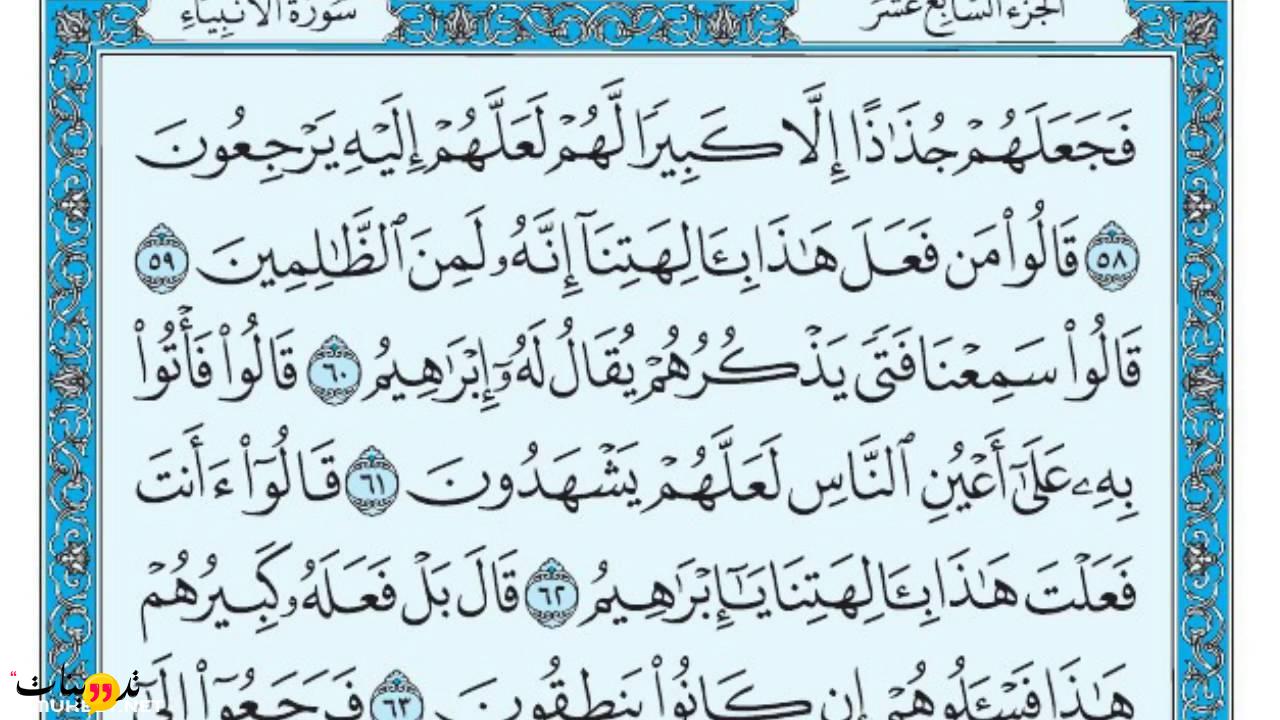 الجزء السابع عشر
سورة الأنبياء
فَجَعَلَهُمْ جُذَٰذًا إِلَّا كَبِيرًا لَّهُمْ لَعَلَّهُمْ إِلَيْهِ يَرْجِعُونَ
٥٨ قَالُوا۟ مَن فَعَلَ هَٰذَا بِـَٔالِهَتِنَآ إِنَّهُۥ لَمِنَ ٱلظَّٰلِمِينَ ٥٩
قَالُوا۟ سَمِعْنَا فَتًى يَذْكُرُهُمْ يُقَالُ لَهُۥٓ إِبْرَٰهِيمُ ٦٠ قَالُوا۟ فَأْتُوا۟
بِهِۦ عَلَىٰٓ أَعْيُنِ ٱلنَّاسِ لَعَلَّهُمْ يَشْهَدُونَ ٦١ قَالُوٓا۟ ءَأَنتَ
فَعَلْتَ هَٰذَا بِـَٔالِهَتِنَا يَٰٓإِبْرَٰهِيمُ ٦٢ قَالَ بَلْ فَعَلَهُۥ كَبِيرُهُمْ
هَٰذَا فَسْـَٔلُوهُمْ إِن كَانُوا۟ يَنطِقُونَ ٦٣ فَرَجَعُوٓا۟ إِلَىٰٓ
تدوينات